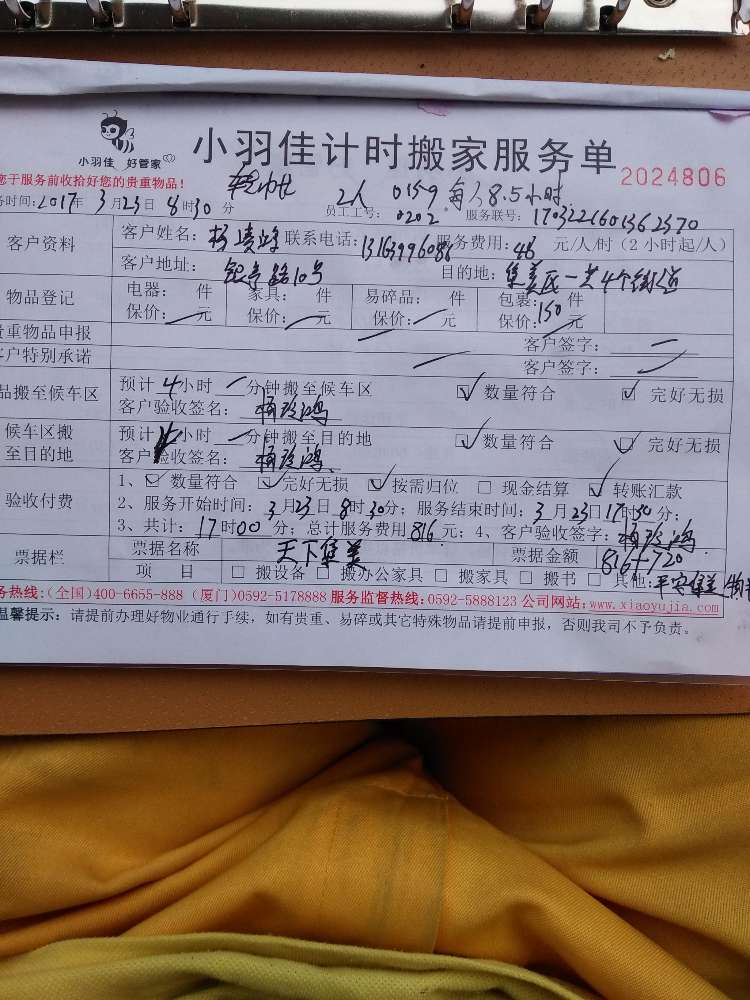 小羽佳 好管家
小羽佳计时搬家服务单
2024806
您于服务前收拾好您的贵重物品！
2人 0159 每人8.5小时
务时间：2017年3月23日8时30分 员工工号：0202 服务联号：1703221601362370
客户资料 客户姓名： 联系电话：13163996086 服务费用：48 元/人/时（2小时起/人）
客户地址：银亭路10号 目的地：集美区一共4个街道
物品登记 电器： 件 家具： 件 易碎品： 件 包裹：150 件
保价：/元 保价：/元 保价：/元 保价：/元
贵重物品申报 客户签字：
客户特别承诺 客户签字：
品搬至候车区 预计4小时 分钟搬至候车区 ☑ 数量符合 ☑ 完好无损
客户验收签名：
候车区搬至目的地 预计4小时 分钟搬至目的地 ☑ 数量符合 ☑ 完好无损
客户验收签名：
验收付费 1、☑ 数量符合 ☑ 完好无损 ☑ 按需归位 □ 现金结算 ☑ 转账汇款
2、服务开始时间：3月23日8时30分；服务结束时间：3月23日17时30分；
3、共计：17时00分；总计服务费用816元；4、客户验收签字：
票据栏 票据名称 天下集美 票据金额 816+720
项 目 □ 搬设备 □ 搬办公家具 □ 搬家具 □ 搬书 □ 其他：平安集美
务热线：（全国）400-6655-888（厦门）0592-5178888 服务监督热线：0592-5888123 公司网站：www.xiaoyujia.com
温馨提示：请提前办理好物业通行手续，如有贵重、易碎或其它特殊物品请提前申报，否则我司不予负责。